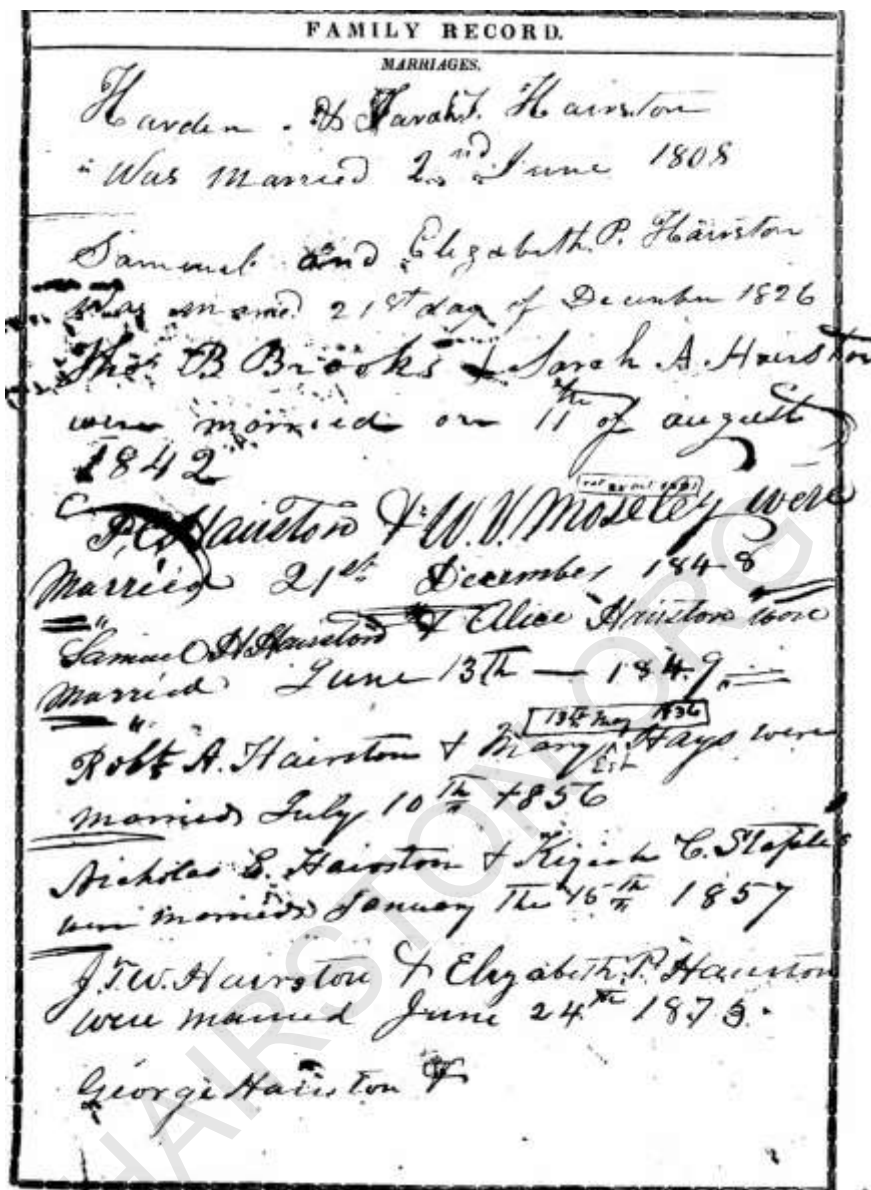 FAMILY RECORD.
MARRIAGES.
Harden. & Sarah. Hairston
Was Married 2nd June 1808
Samuel and Elizabeth P. Hairston
Was 21st day of December 1826
Thos B Brooks & Sarah A. Hairston
were married on 11th of august
1842
P. C. Hairston & W. V. Moseley were
Married 21st December 1848
Samuel H. Hairston & Alice Hairston were
Married June 13th — 1849
13th May 1836
Robt A. Hairston & Mary Hays were
married July 10th 1856
Nicholas E. Hairston & Kiziah C. Staples
were married January The 15th 1857
J. T. W. Hairston & Elizabeth P. Hairston
were married June 24th 1873.
George Hairston &
HAIRSTON.ORG